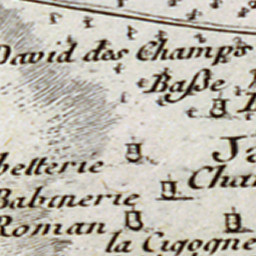 David des Champs
Baße
belterie
Babinerie
Cha
Roman
la Cigogne